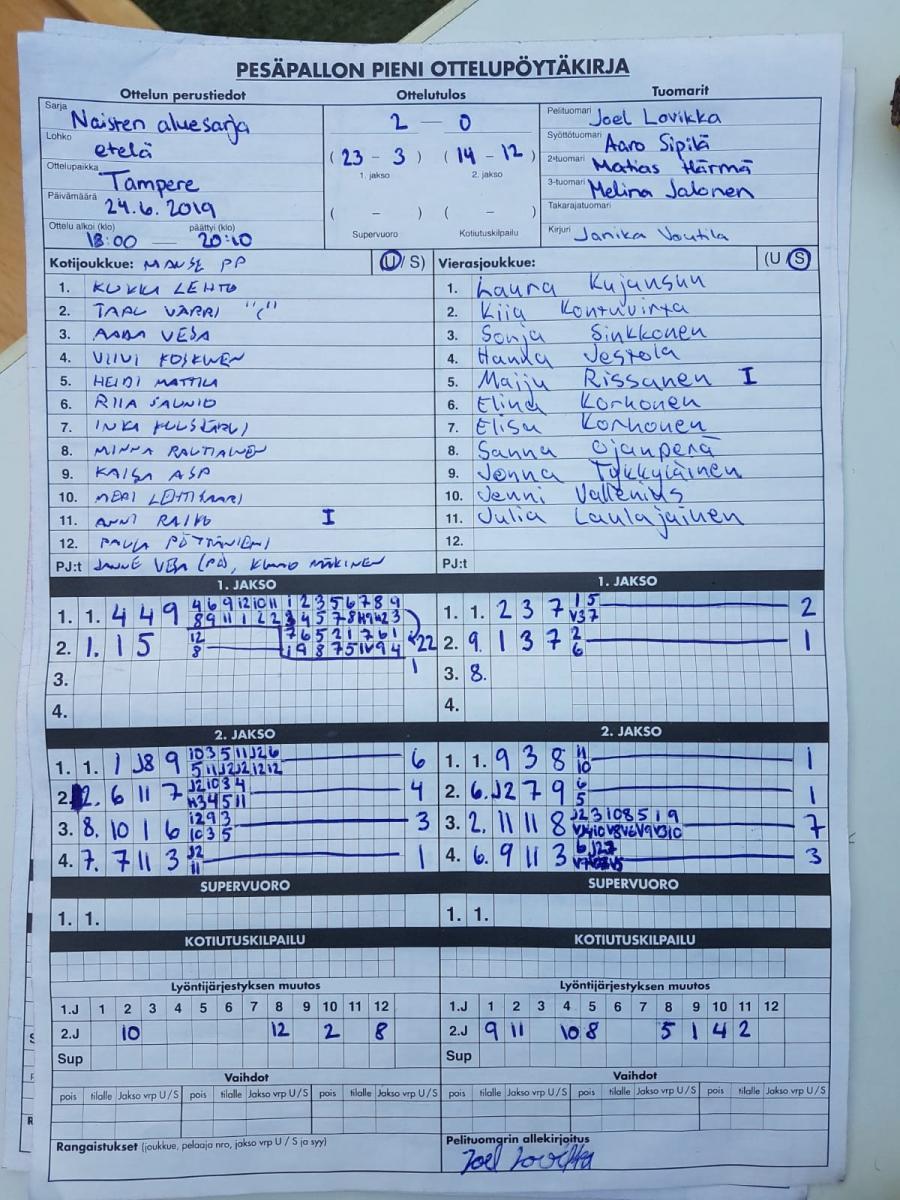 PESÄPALLON PIENI OTTELUPÖYTÄKIRJA
Ottelun perustiedot
Sarja Naisten aluesarja
Lohko etelä
Ottelupaikka Tampere
Päivämäärä 24.6.2019
Ottelu alkoi (klo) päättyi (klo)
18:00 — 20:10
Ottelutulos
2 — 0
(23 - 3) (14 - 12)
1. jakso 2. jakso
( - ) ( - )
Supervuoro Kotiutuskilpailu
Tuomarit
Pelituomari Joel Lovikka
Syöttötuomari Aaro Sipilä
2-tuomari Matias Härmä
3-tuomari Melina Jalonen
Takarajatuomari
Kirjuri Janika Voutila
Kotijoukkue: MANSE PP (U/S)
1. KUKKA LEHTO
2. TARU VARRI "("
3. AADA VESA
4. VIIVI KOSKINEN
5. HEIDI MATTILA
6. RIIA SAUNIO
7. INKA
8. MINNA RAUTIAINEN
9. KAISA ASP
10. MERI LEHTISAARI
11. ANNI RAIVO I
12. PAULA PÖTTINIEMI
PJ:t JANNE VESA (PJ), MÄKINEN
Vierasjoukkue: (U S)
1. Laura Kujansuu
2. Kiia Kontuvirta
3. Sonja Sinkkonen
4. Hanna Jestola
5. Maiju Rissanen I
6. Elina Korhonen
7. Elisa Korhonen
8. Sanna Ojanperä
9. Jonna Tykkyläinen
10. Jenni Vallenius
11. Julia Laulajainen
12.
PJ:t
1. JAKSO
1. 1. 4 4 9 4 6 9 12 10 11 1 2 3 5 6 7 8 9
22
2. 1. 1 5 12 7 6 5 2 1 7 6 1
8
1
3.
4.
1. JAKSO
1. 1. 2 3 7 1 5 2
V3 7
2. 9. 1 3 7 2 1
6
3. 8.
4.
2. JAKSO
1. 1. 1 J8 9 10 3 5 11 J2 6 6
5 11 J2 J2 12 12
2. 2. 6 11 7 J2 10 3 4 4
3 4 5 11
3. 8. 10 1 6 12 9 3 3
10 3 5
4. 7. 7 11 3 J2 1
11
2. JAKSO
1. 1. 9 3 8 11 1
10
2. 6. J2 7 9 6 1
5
3. 2. 11 11 8 J2 3 10 8 5 1 9 7
4. 6. 9 11 3 6 J2 7 3
SUPERVUORO
1. 1.
SUPERVUORO
1. 1.
KOTIUTUSKILPAILU
KOTIUTUSKILPAILU
Lyöntijärjestyksen muutos
1.J 1 2 3 4 5 6 7 8 9 10 11 12
2.J 10 12 2 8
Sup
Lyöntijärjestyksen muutos
1.J 1 2 3 4 5 6 7 8 9 10 11 12
2.J 9 11 10 8 5 1 4 2
Sup
Vaihdot
pois tilalle Jakso vrp U/S pois tilalle Jakso vrp U/S pois tilalle Jakso vrp U/S
Vaihdot
pois tilalle Jakso vrp U/S pois tilalle Jakso vrp U/S pois tilalle Jakso vrp U/S
Rangaistukset (joukkue, pelaaja nro, jakso vrp U / S ja syy)
Pelituomarin allekirjoitus
Joel Lovikka